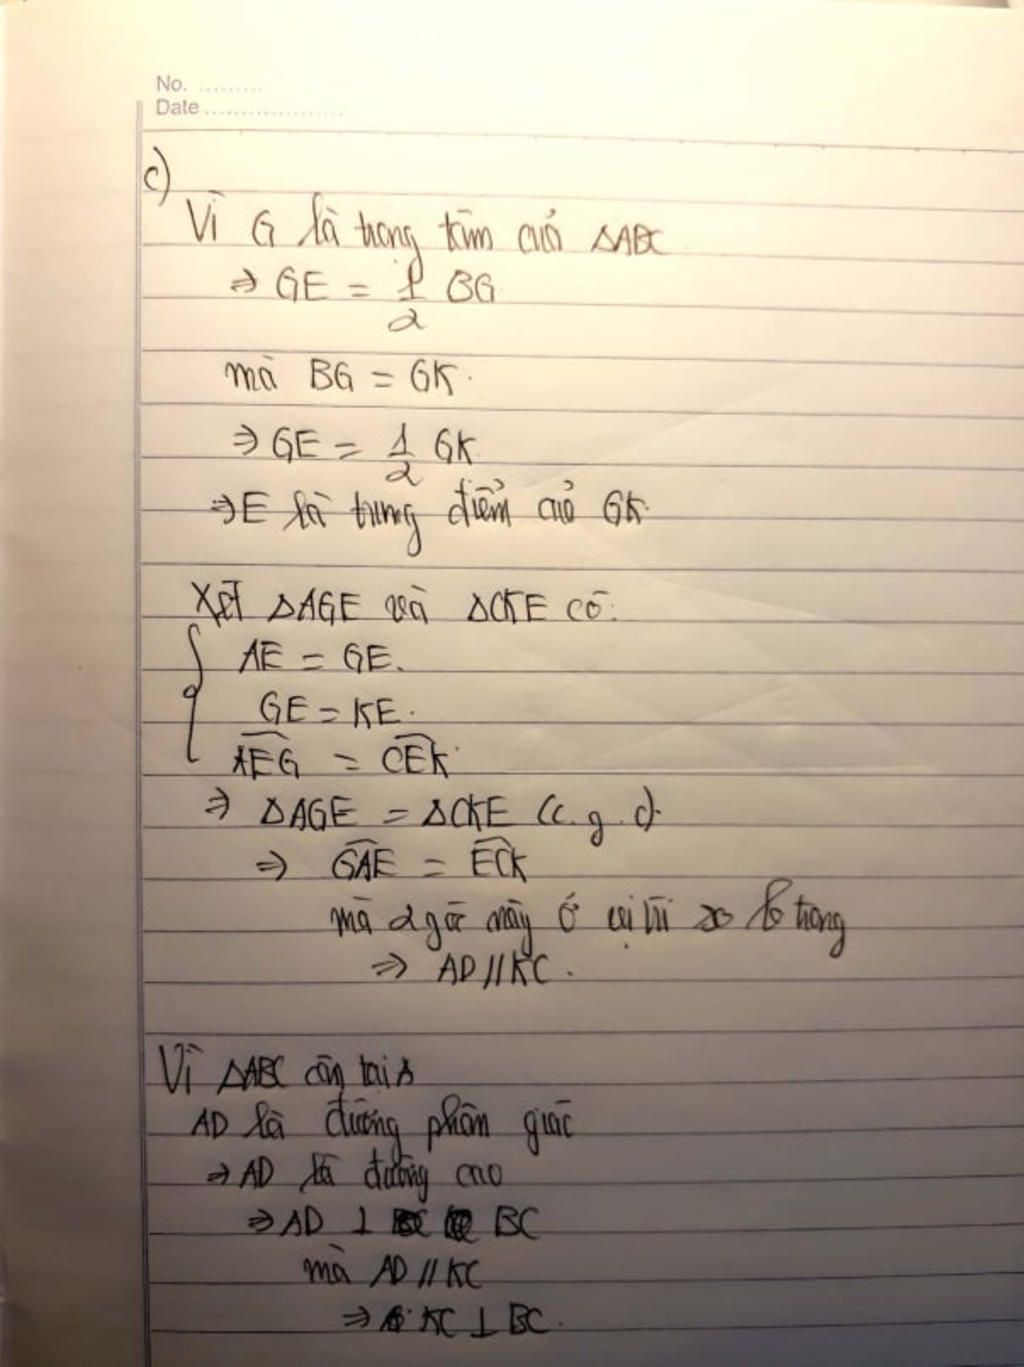 No. .........
Date ...................
c)
Vì G là trọng tâm của ΔABC
⇒ GE = 1/2 BG
mà BG = GK.
⇒ GE = 1/2 GK
⇒ E là trung điểm của GK.
Xét ΔAGE và ΔCKE có:
{ AE = GE.
GE = KE.
∠AEG = ∠CEK.
⇒ ΔAGE = ΔCKE (c.g.c).
⇒ ∠GAE = ∠ECK
mà 2 góc này ở vị trí so le trong
⇒ AD // KC.
Vì ΔABC cân tại A
AD là đường phân giác
⇒ AD là đường cao
⇒ AD ⊥ BC
mà AD // KC
⇒ KC ⊥ BC.